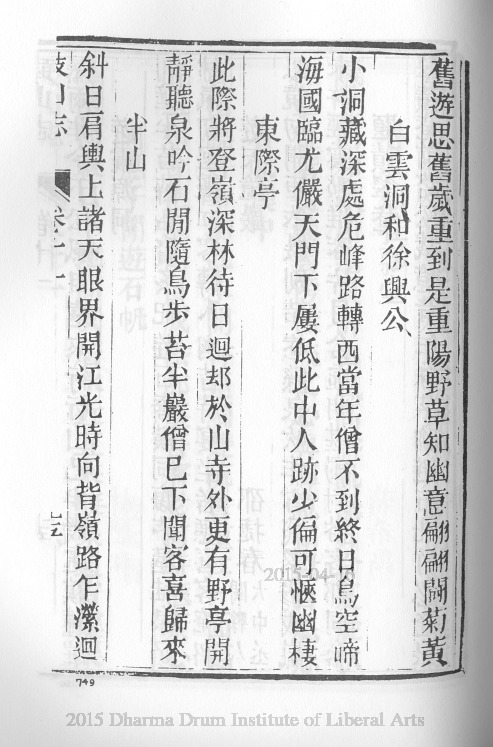 舊遊思舊歲重到是重陽野草知幽意翩翩鬪菊黃
白雲洞和徐興公
小洞藏深處危峰路轉西當年僧不到終日鳥空啼
海國臨尤儼天門下屢低此中人跡少偏可愜幽棲
東際亭
此際將登嶺深林待日迴却於山寺外更有野亭開
靜聽泉吟石閒隨鳥步苔半巖僧已下聞客喜歸來
半山
斜日肩輿上諸天眼界開江光時向背嶺路乍瀠迴
山志 卷十一
749
2015-04
2015 Dharma Drum Institute of Liberal Arts